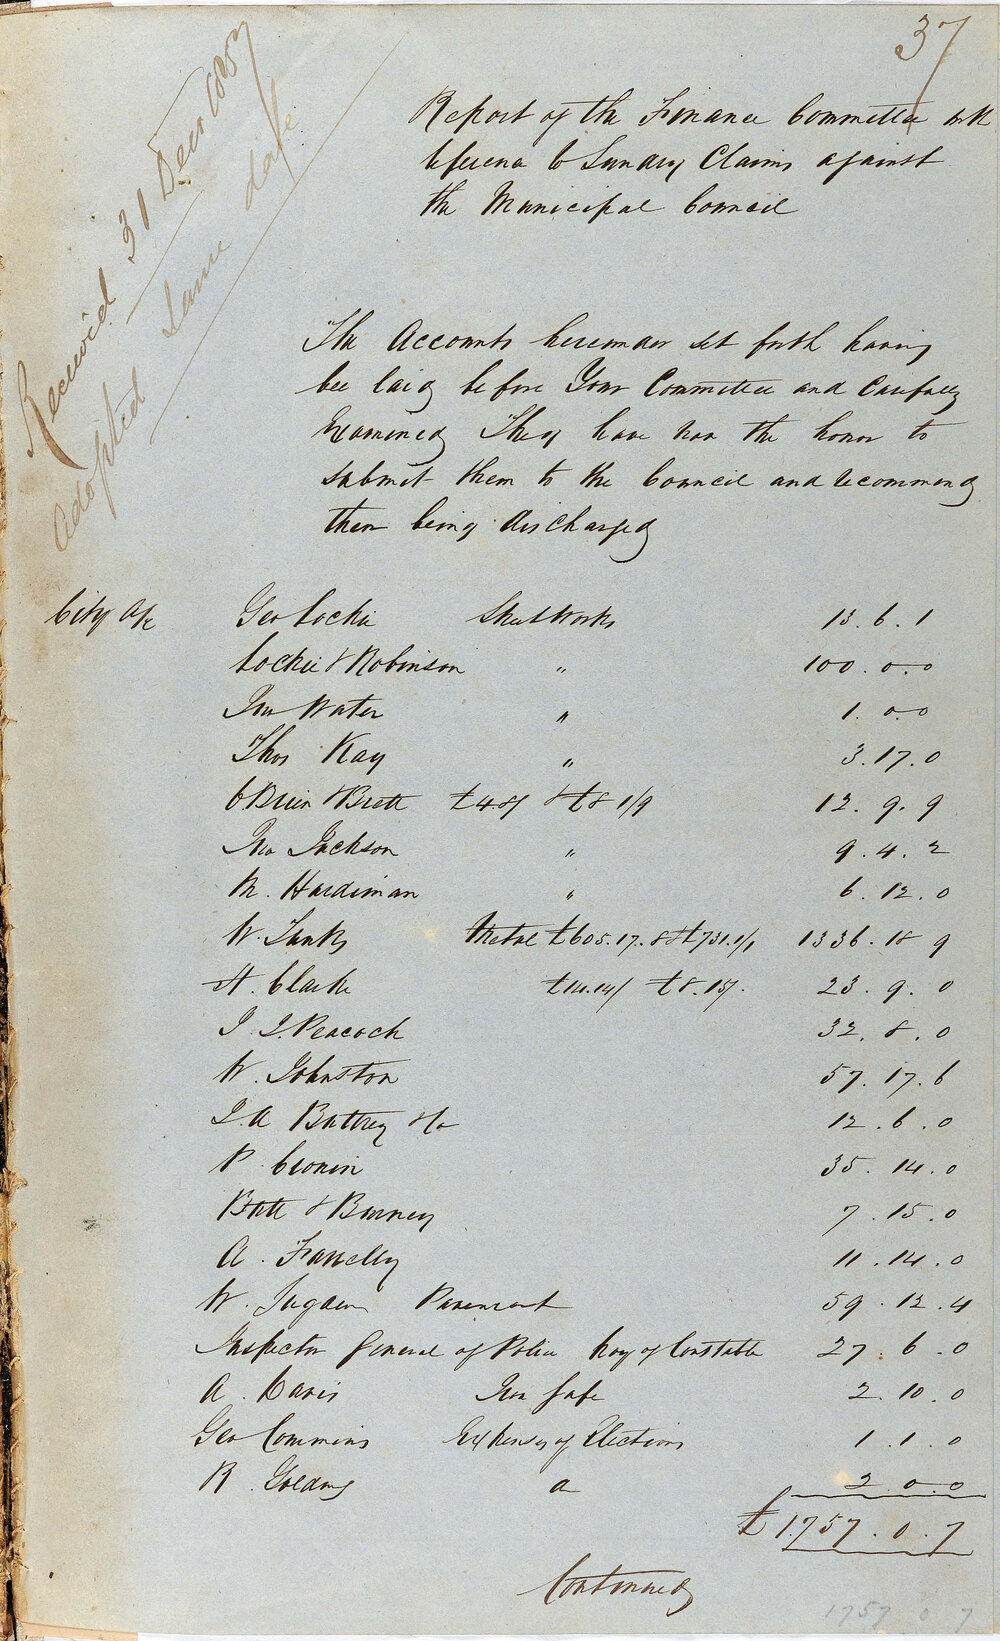 37
Received 31 Decr 1855
Adopted same date
Report of the Finance Committee with
reference to Sundry Claims against
the Municipal Council
The Accounts hereunder set forth having
bee laid before Your Committee and Carefully
Examined They have now the honor to
submit them to the Council and recommend
them being discharged
City A/c Geo Lockie Street Works 13.6.1
Lockie & Robinson " 100.0.0
Water " 1.0.0
Thos Kay " 3.17.0
OBrien & Brett £4.8/ & £8 1/9 12.9.9
Jno Jackson " 9.4.2
M. Hardiman " 6.12.0
W. Tunks Metal £605.17.8 & £731.1/1 1336.18 9
H. Clarke £14.14/ £8.15/. 23.9.0
J. J. Peacock 32.8.0
W. Johnston 57.17.6
J. A Buttrey & Co 12.6.0
P. Cronin 35.14.0
& Burney 7.15.0
A. 11.14.0
W. Sugden Pavement 59.12.4
Inspector General of Police Pay of Constable 27.6.0
A. Davis Iron Safe 2.10.0
Geo Commins Expenses of Elections 1.1.0
R. Golding 2.0.0
£1757.0.7
Continued
1757 0 7